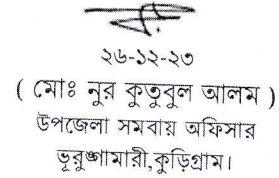 ২৬-১২-২৩
( মোঃ নুর কুতুবুল আলম )
উপজেলা সমবায় অফিসার
ভূরুঙ্গামারী,কুড়িগ্রাম।